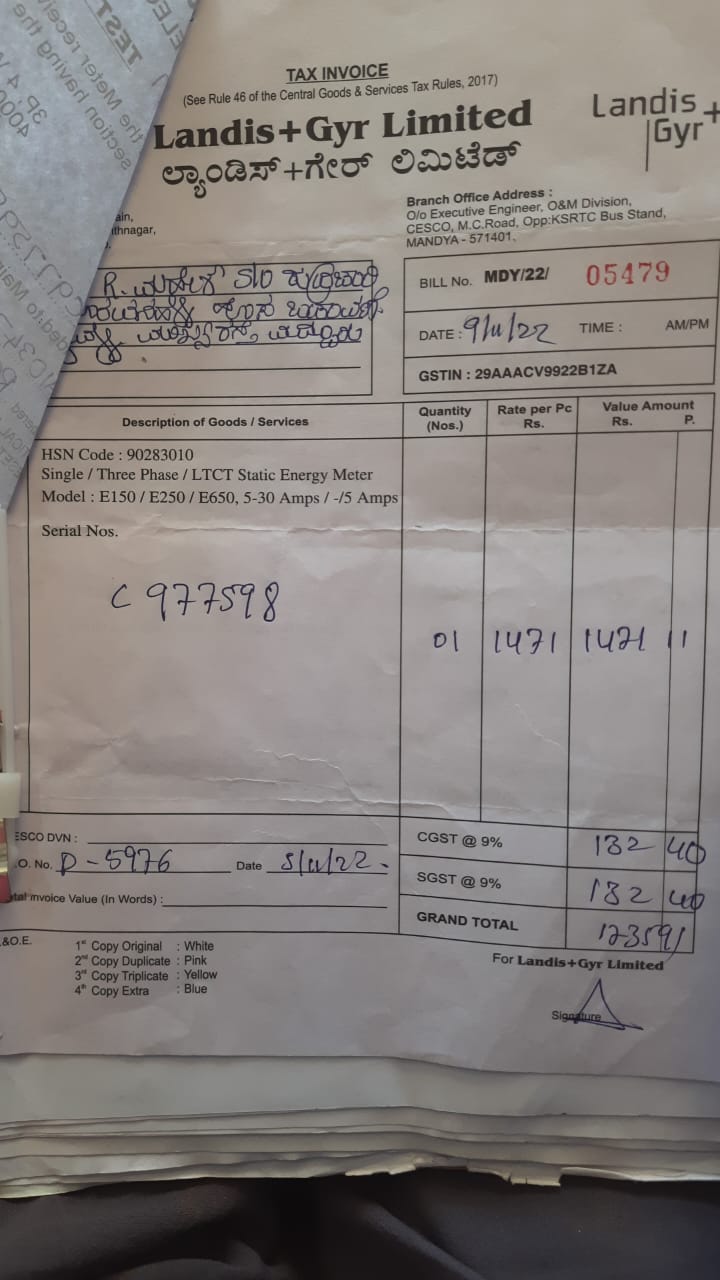 TAX INVOICE
(See Rule 46 of the Central Goods & Services Tax Rules, 2017)
Landis+Gyr Limited
ಲ್ಯಾಂಡಿಸ್+ಗೇರ್ ಲಿಮಿಟೆಡ್
Landis+
Gyr
ain,
ithnagar,
Branch Office Address :
O/o Executive Engineer, O&M Division,
CESCO, M.C.Road, Opp:KSRTC Bus Stand,
MANDYA - 571401.
R. S/o
BILL No. MDY/22/ 05479
DATE : 9/11/22 TIME : AM/PM
GSTIN : 29AAACV9922B1ZA
Description of Goods / Services
Quantity (Nos.)
Rate per Pc Rs.
Value Amount Rs. P.
HSN Code : 90283010
Single / Three Phase / LTCT Static Energy Meter
Model : E150 / E250 / E650, 5-30 Amps / -/5 Amps
Serial Nos.
C 977598
01 1471 1471 11
ESCO DVN :
.O. No. D-5976 Date 5/11/22.
tal Invoice Value (In Words) :
CGST @ 9% 132 40
SGST @ 9% 132 40
GRAND TOTAL
&O.E.
1st Copy Original : White
2nd Copy Duplicate : Pink
3rd Copy Triplicate : Yellow
4th Copy Extra : Blue
For Landis+Gyr Limited
Signature